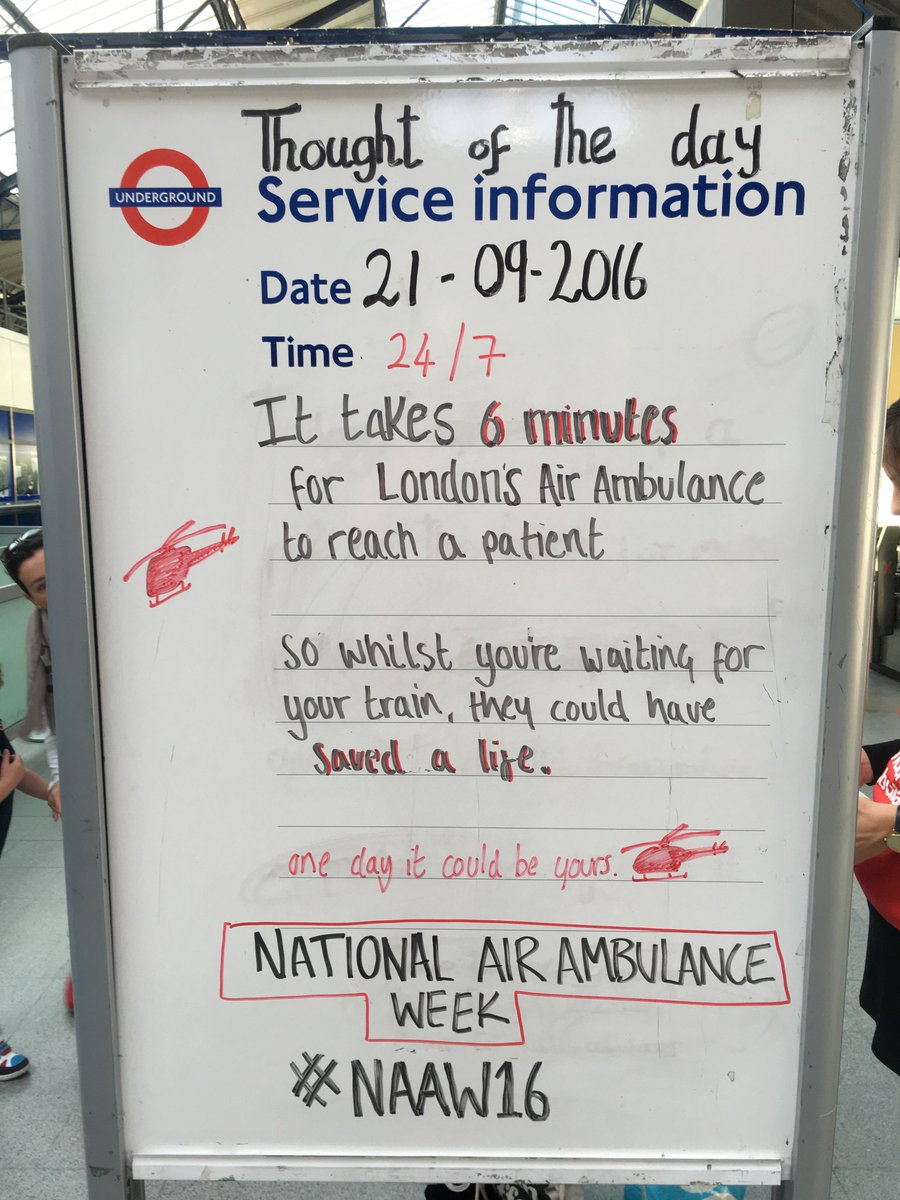 Thought of the day
UNDERGROUND
Service information
Date 21-09-2016
Time 24/7
It takes 6 minutes
for London's Air Ambulance
to reach a patient
So whilst you're waiting for
your train, they could have
saved a life.
one day it could be yours.
NATIONAL AIR AMBULANCE
WEEK
#NAAW16